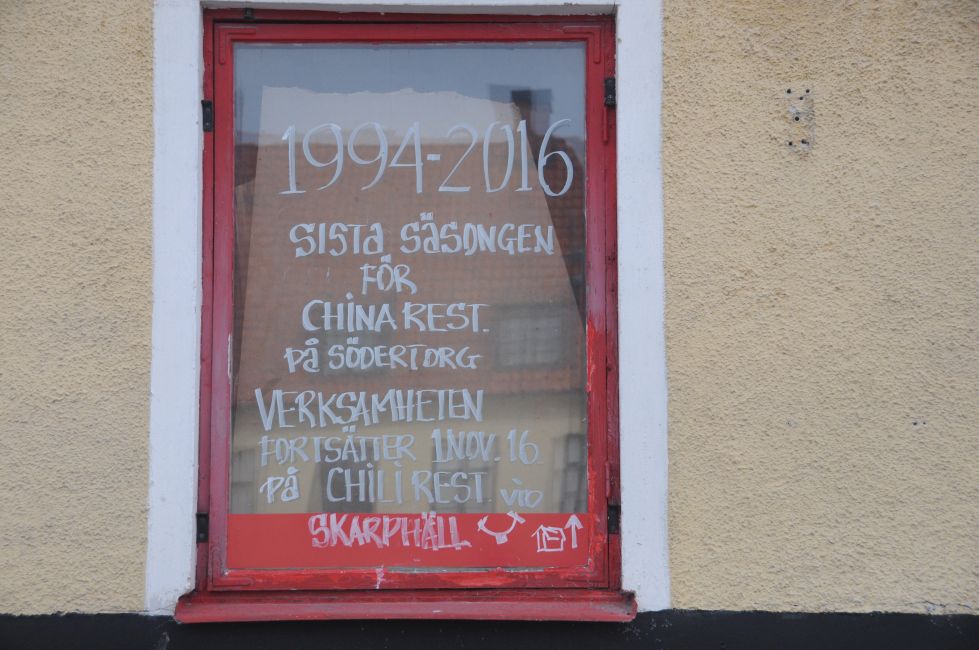 1994-2016
SISTA SÄSONGEN
FÖR
CHINA REST.
PÅ SÖDERTORG
VERKSAMHETEN
FORTSÄTTER 1 NOV. 16.
PÅ CHILI REST. VID
SKARPHÄLL